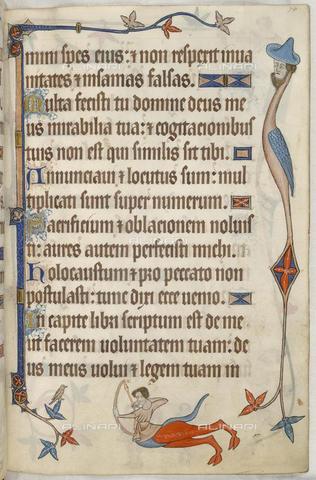 mini spes eius: ⁊ non respexit in ua
nitates ⁊ insanias falsas.
Multa fecisti tu domine deus me
us mirabilia tua: ⁊ cogitacionibus
tuis non est qui similis sit tibi.
Annunciaui ⁊ locutus sum: mul
tiplicati sunt super numerum.
Sacrificium ⁊ oblacionem noluis
ti: aures autem perfecisti michi.
Holocaustum ⁊ pro peccato non
postulasti: tunc dixi ecce uenio.
In capite libri scriptum est de me
ut facerem uoluntatem tuam: de
us meus uolui ⁊ legem tuam in
ALINARI
ALINARI
ALINARI
ALINARI